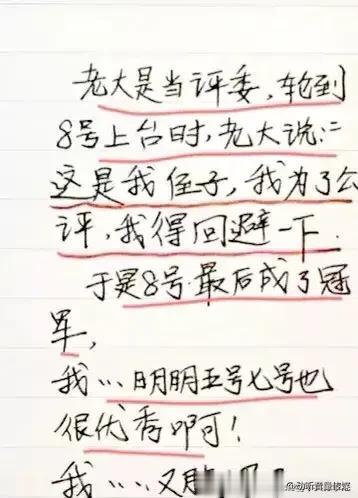 老大是当评委，轮到
8号上台时，老大说：
这是我侄子，我为了公
评，我得回避一下.
于是8号最后成了冠
军，
我…明明五号七号也
很优秀啊！
我……又